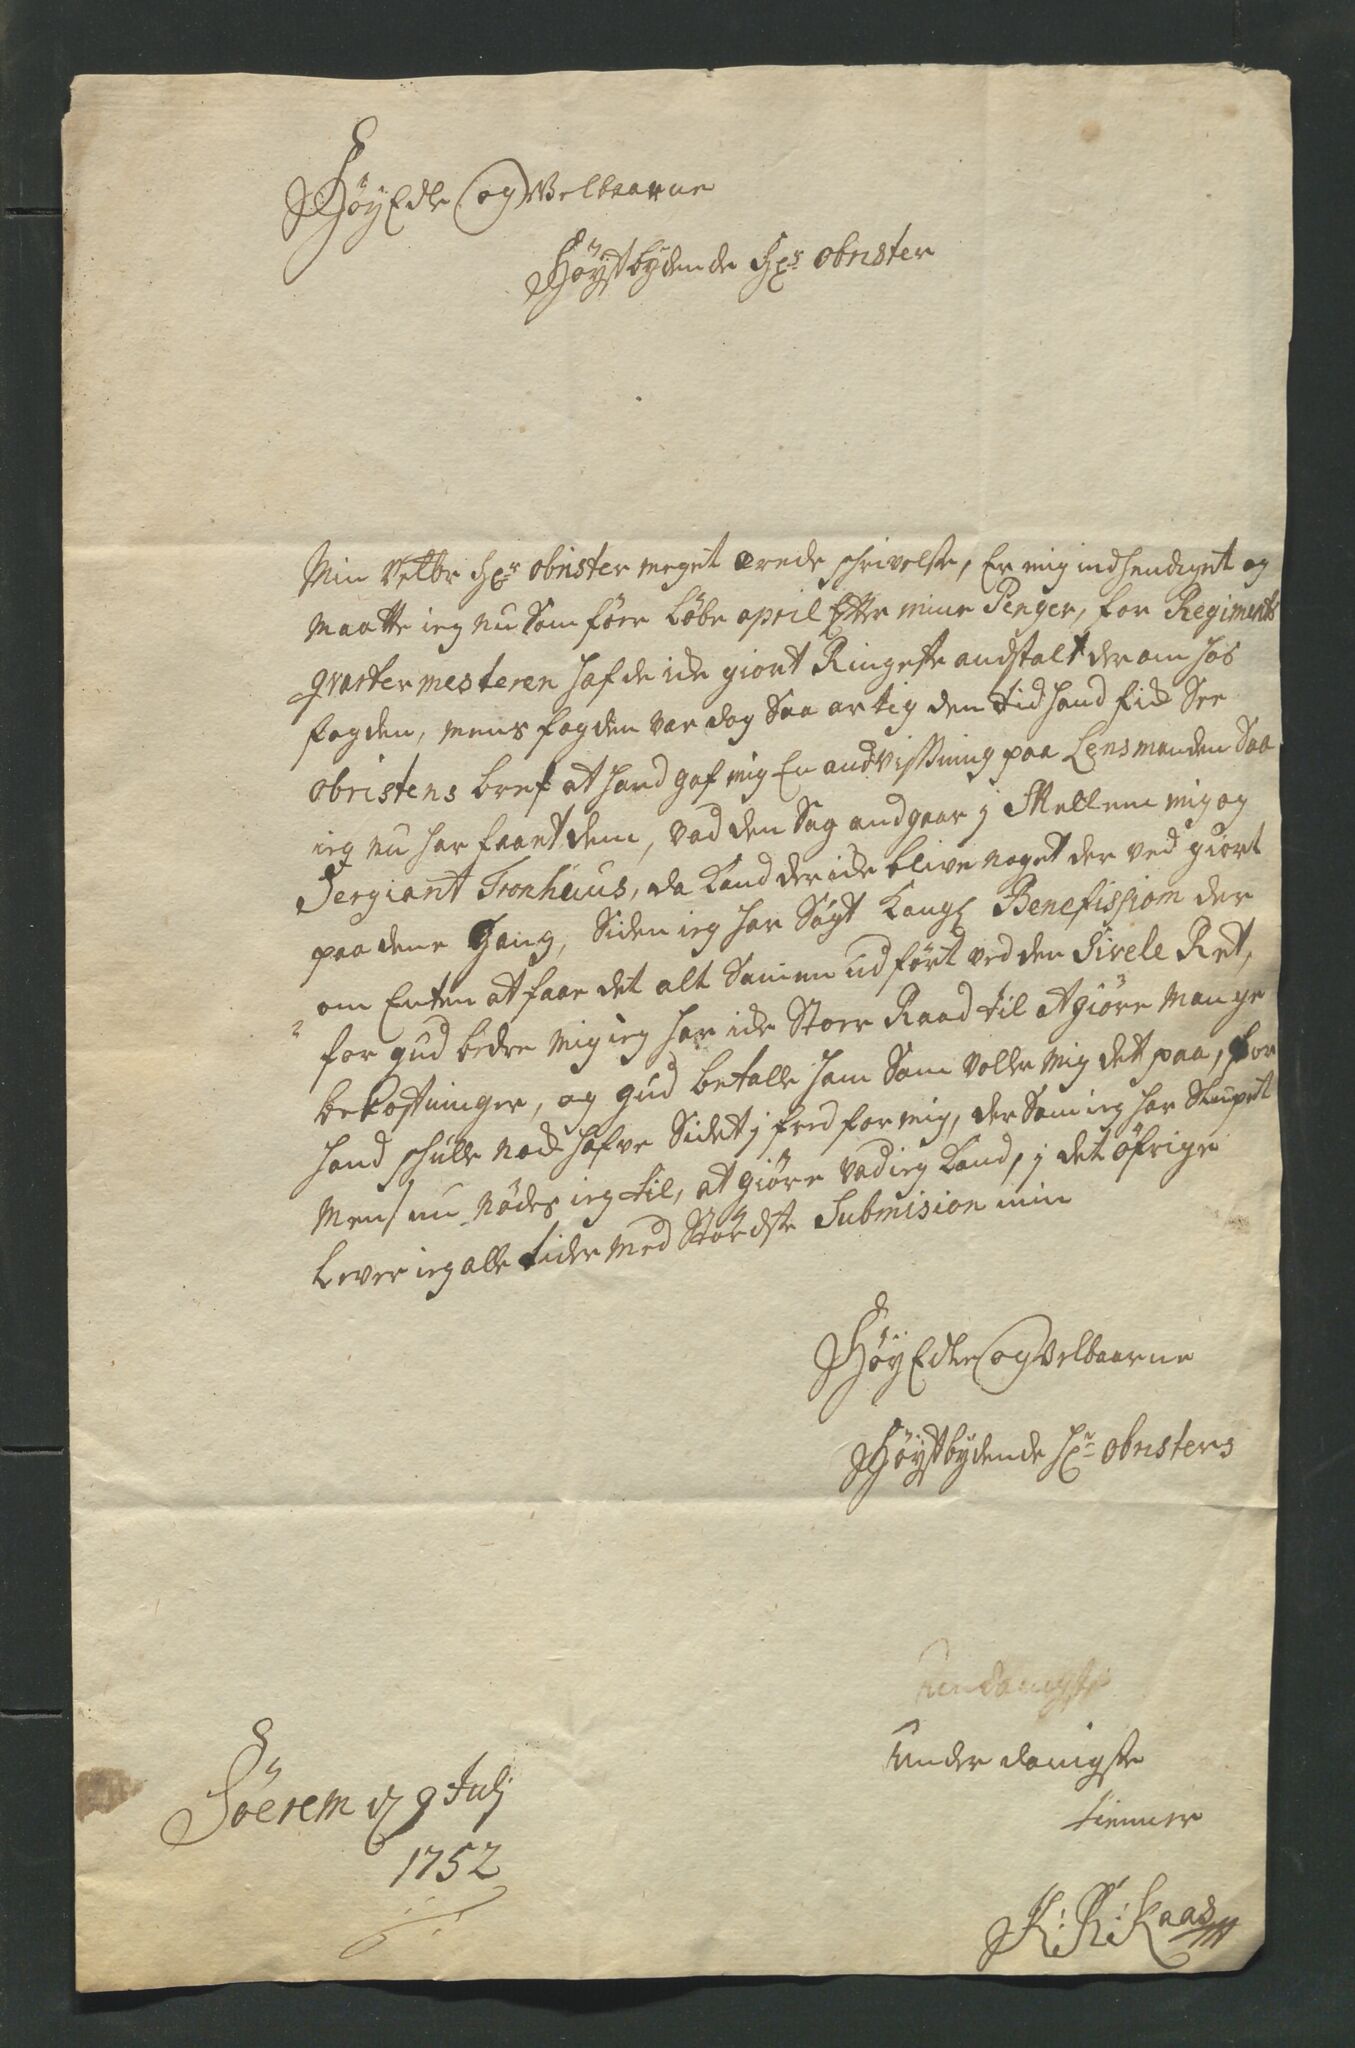 HöyEdle og Velbaarne
Höystbydende Hr: obrister
Min Velbr Hr: obrister meget ærede schrivelse, Er mig indhendiget og
maatte ieg nu som förr löbe april Efter mine Penger, for Regiments
qvartermesteren hafde icke giort Ringeste andstalt derom hos
fogden, mens fogden var dog saa artig den tid hand fick See
obristens bref at hand gaf mig En andvissning paa Lensmanden Saa
ieg nu har faaet dem, vad den Sag andgaar j Mellem mig og
Sergiant Tronhuus, da kand der icke blive noget der ved giort
paa dene Gang, Siden ieg har Sögt Kongl Benefission der
om Enten at faae det alt Sammen udfört ved den Sivele Ret,
for gud bedre mig ieg har icke Stoer Raad til at giöre mange
bekostninger, og gud betalle ham Som voller mig det paa, for
hand schulle nock hafve Sidet j fred for mig, der Som ieg har Sluppet
men nu nödes ieg til, at giöre vad ieg kand, j det öfrige
lever ieg alle tider med Störste Submision min
HöyEdle og Velbaarne
Höystbydende Hr: obristers
underdanigste
tienner
Söerem d 9 Julj
1752
K: K: Kaas